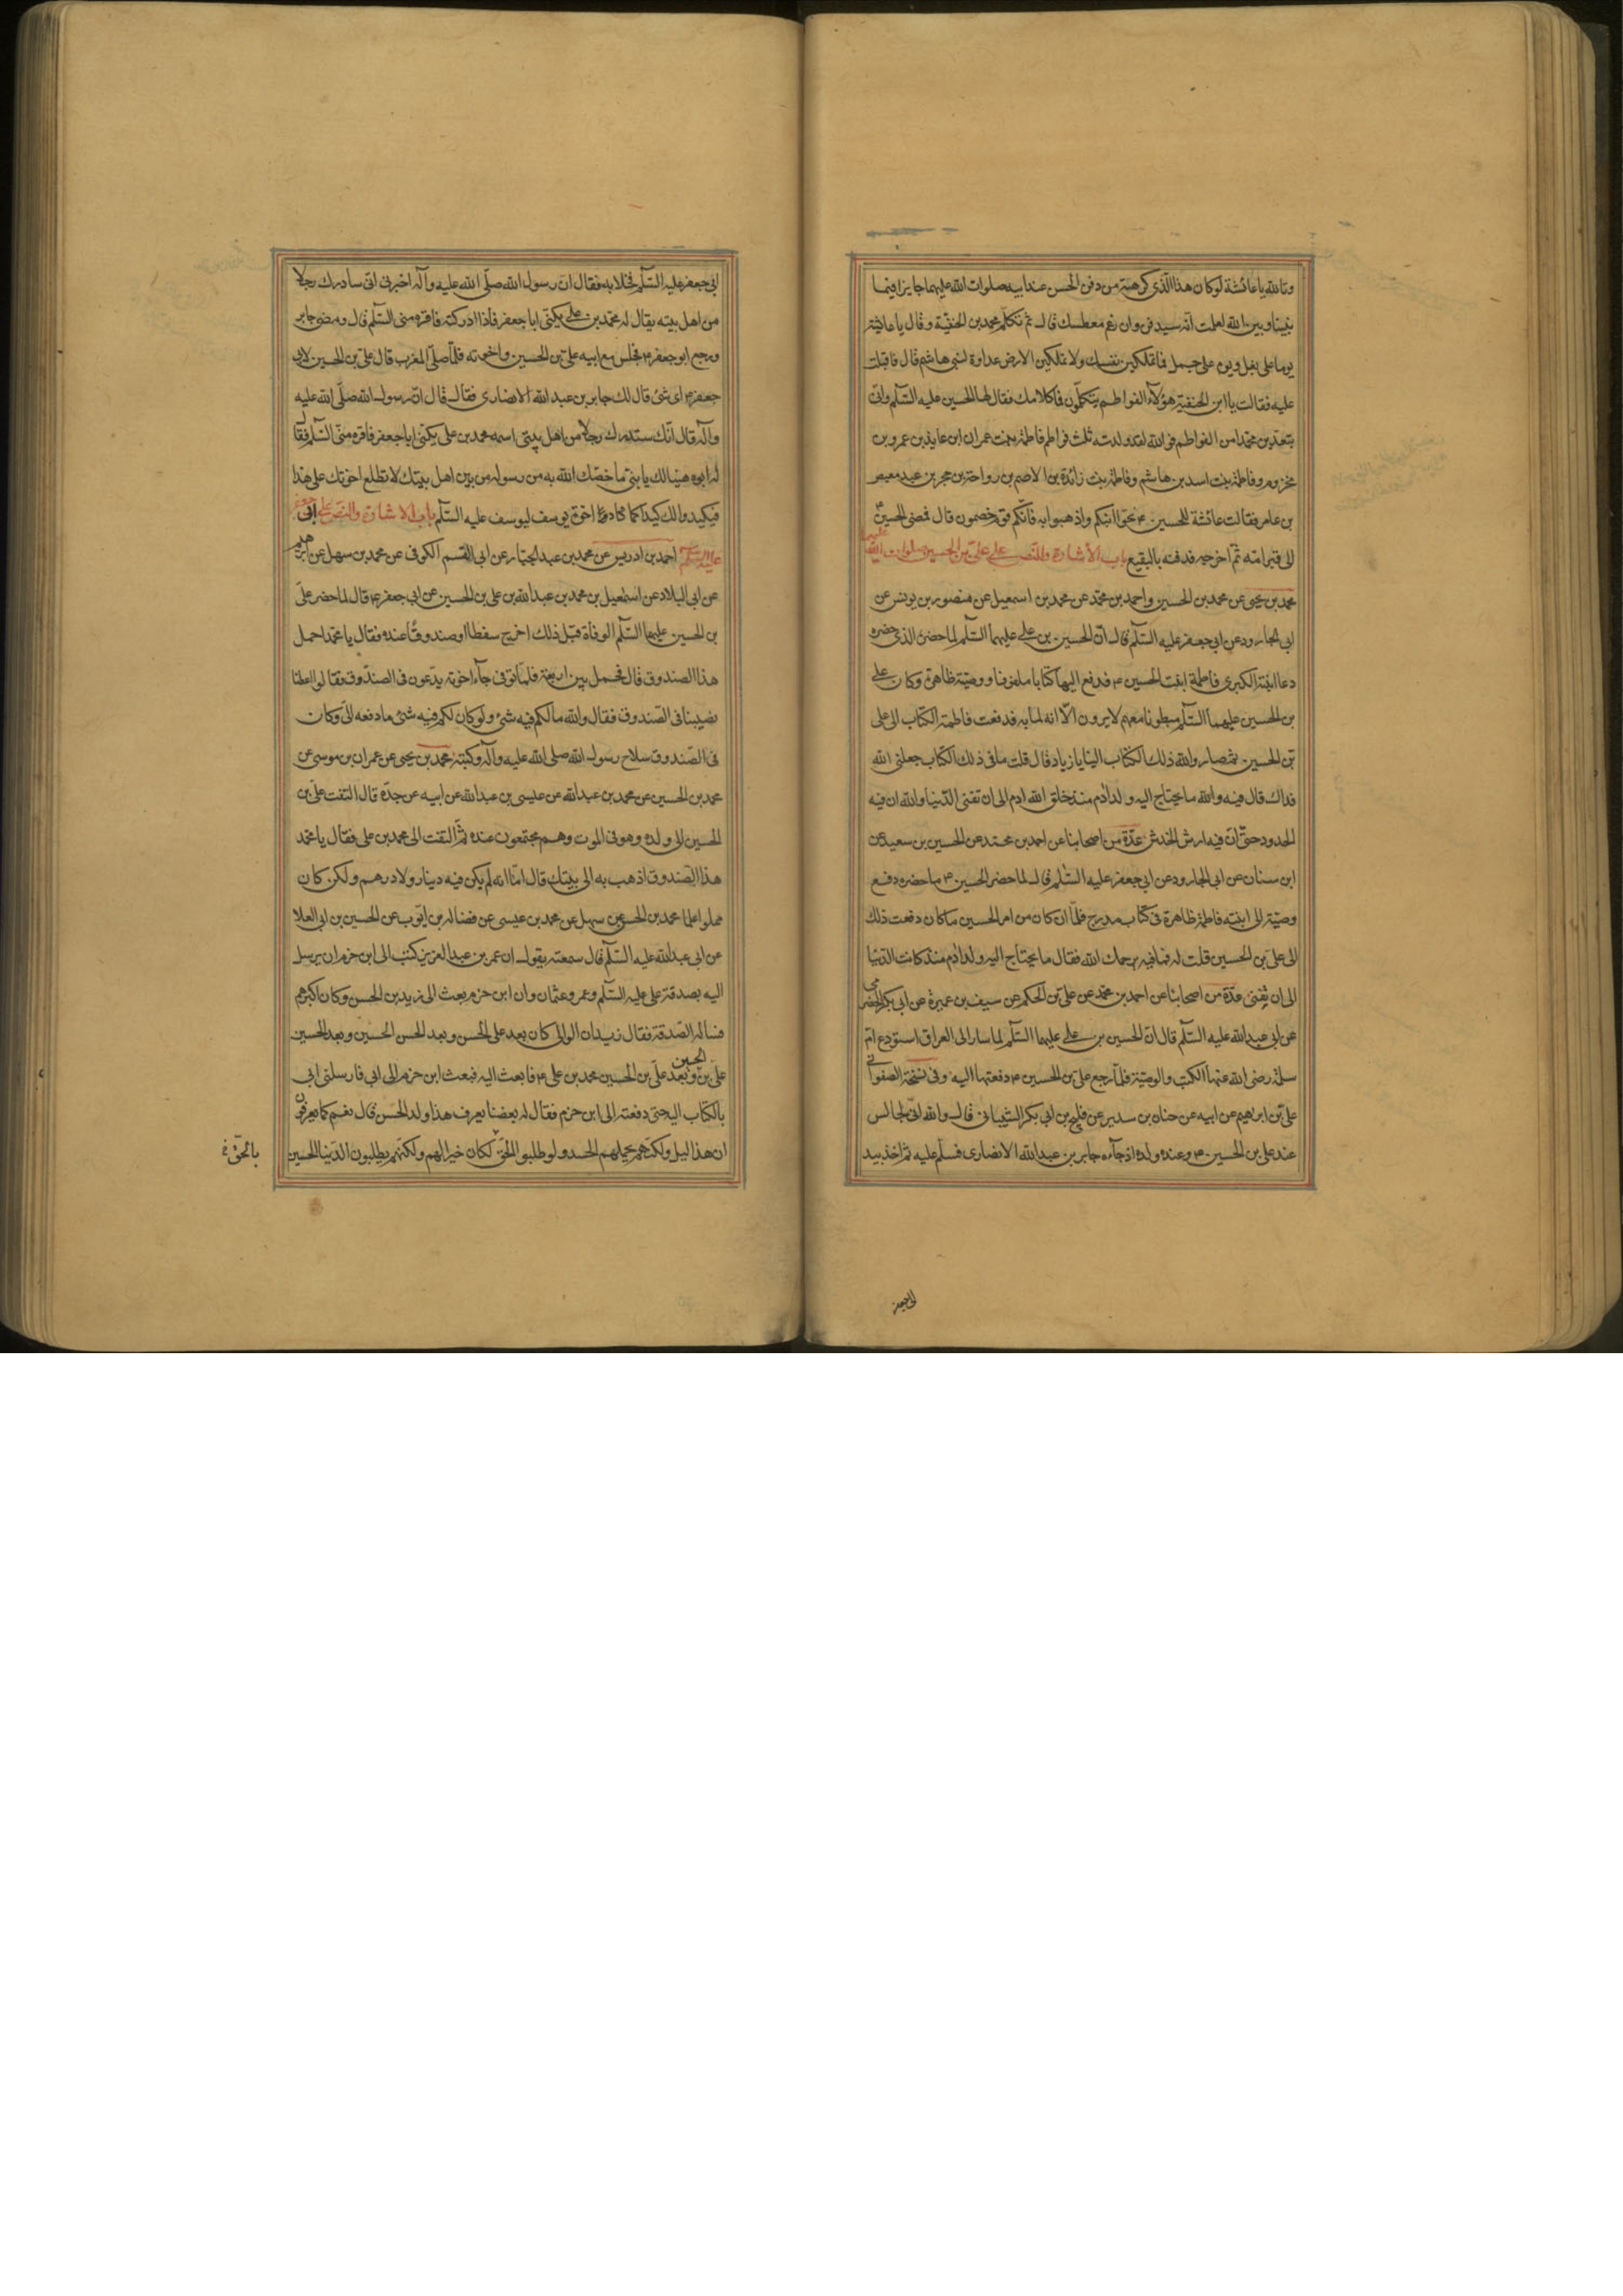 وتالله يا عائشة لو كان هذا الذى كرهتيه من دفن الحسن عند ابيه صلوات الله عليهما جايزا فيما
بيننا وبين الله لعلمت انه سيدفن وان رغم معطسك قال ثم تكلم محمد بن الحنفية وقال يا عائشة
يوما على بغل ويوم على جمل فما تملكين نفسك ولا تملكين الارض عداوة لبنى هاشم قال فاقبلت
عليه فقالت يا ابن الحنفية هؤلآء الفواطم يتكلمون فما كلامك فقال لها الحسين عليه السلم وانى
تبعدين محمدا من الفواطم فوالله لقد ولدته ثلث فواطم فاطمة بنت عمران ابن عايذ بن عمرو بن
مخزوم وفاطمة بنت اسد بن هاشم وفاطمة بنت زائدة بن الاصم بن رواحة بن حجر بن عبد معيص
بن عامر فقالت عائشة للحسين ع نحوا ابنكم واذهبوا به فانكم قوم خصمون قال فمضى الحسين ع
الى قبر امه ثم اخرجه فدفنه بالبقيع باب الاشارة والنص على على بن الحسين صلوات الله عليهما
محمد بن يحيى عن محمد بن الحسين واحمد بن محمد عن محمد بن اسمعيل عن منصور بن يونس عن
ابى الجارود عن ابى جعفر عليه السلم قال ان الحسين بن على عليهما السلم لما حضره الذى حضره
دعا ابنته الكبرى فاطمة ابنت الحسين ع فدفع اليها كتابا ملفوفا ووصية ظاهرة وكان على
بن الحسين عليهما السلم مبطونا معهم لا يرون الا انه لما به فدفعت فاطمة الكتاب الى على
بن الحسين ثم صار والله ذلك الكتاب الينا يا زياد قال قلت ما فى ذلك الكتاب جعلنى الله
فداك قال فيه والله ما يحتاج اليه ولد ادم منذ خلق الله ادم الى ان تفنى الدنيا والله ان فيه
الحدود حتى ان فيه ارش الخدش عدة من اصحابنا عن احمد بن محمد عن الحسين بن سعيد عن
ابن سنان عن ابى الجارود عن ابى جعفر عليه السلم قال لما حضر الحسين ع ما حضره دفع
وصيته الى ابنته فاطمة ظاهرة فى كتاب مدرج فلما ان كان من امر الحسين ما كان دفعت ذلك
الى على بن الحسين قلت له فما فيه يرحمك الله فقال ما يحتاج اليه ولد ادم منذ كانت الدنيا
الى ان تفنى عدة من اصحابنا عن احمد بن محمد عن على بن الحكم عن سيف بن عميرة عن ابى بكر الحضرمى
عن ابى عبد الله عليه السلم قال ان الحسين بن على عليهما السلم لما سار الى العراق استودع ام
سلمة رضى الله عنها الكتب والوصية فلما رجع على بن الحسين ع دفعتها اليه وفى نسخة الصفوانى
على بن ابرهيم عن ابيه عن حنان بن سدير عن فليح بن ابى بكر الشيبانى قال والله انى لجالس
عند على بن الحسين ع وعنده ولده اذ جآءه جابر بن عبد الله الانصارى فسلم عليه ثم اخذ بيد
ابى جعفر
ابى جعفر عليه السلم فخلا به فقال ان رسول الله صلى الله عليه وآله اخبرنى انى سادرك رجلا
من اهل بيته يقال له محمد بن على يكنى ابا جعفر فاذا ادركته فاقره منى السلم قال ومضى جابر
ورجع ابو جعفر ع فجلس مع ابيه على بن الحسين واخوته فلما صلى المغرب قال على بن الحسين لابى
جعفر ع اى شئ قال لك جابر بن عبد الله الانصارى فقال قال ان رسول الله صلى الله عليه
وآله قال انك ستدرك رجلا من اهل بيتى اسمه محمد بن على يكنى ابا جعفر فاقره منى السلم فقال
له ابوه هنيئا لك يا بنى ما خصك الله به من رسوله من بين اهل بيتك لا تطلع اخوتك على هذا
فيكيدوا لك كيدا كما كادوا اخوة يوسف ليوسف عليه السلم باب الاشارة والنص على ابى جعفر
عليه السلم احمد بن ادريس عن محمد بن عبد الجبار عن ابى القسم الكوفى عن محمد بن سهل عن ابرهيم
عن ابى البلاد عن اسمعيل بن محمد بن عبد الله بن على بن الحسين عن ابى جعفر ع قال لما حضر على
بن الحسين عليهما السلم الوفاة قبل ذلك اخرج سفطا او صندوقا عنده فقال يا محمد احمل
هذا الصندوق قال فحمل بين اربعة فلما توفى جآء اخوته يدعون فى الصندوق فقالوا اعطنا
نصيبنا فى الصندوق فقال والله ما لكم فيه شئ ولو كان لكم فيه شئ ما دفعه الى وكان
فى الصندوق سلاح رسول الله صلى الله عليه وآله وكتبه محمد بن يحيى عن عمران بن موسى عن
محمد بن الحسين عن محمد بن عبد الله عن عيسى بن عبد الله عن ابيه عن جده قال التفت على بن
الحسين الى ولده وهو فى الموت وهم مجتمعون عنده ثم التفت الى محمد بن على فقال يا محمد
هذا الصندوق اذهب به الى بيتك قال اما انه لم يكن فيه دينار ولا درهم ولكن كان
مملوا علما محمد بن الحسن عن سهل عن محمد بن عيسى عن فضالة بن ايوب عن الحسين بن ابى العلا
عن ابى عبد الله عليه السلم قال سمعته يقول ان عمر بن عبد العزيز كتب الى ابن حزم ان يرسل
اليه بصدقة على عليه السلم وعمر وعثمان وان ابن حزم بعث الى زيد بن الحسن وكان اكبرهم
فساله الصدقة فقال زيد ان الوالى كان بعد على الحسن وبعد الحسن الحسين وبعد الحسين
على بن الحسين وبعد على بن الحسين محمد بن على ع فابعث اليه فبعث ابن حزم الى ابى فارسلنى ابى
بالكتاب اليه حتى دفعته الى ابن حزم فقال له بعضنا يعرف هذا ولد الحسن قال نعم كما يعرفون
ان هذا ليل ولكنهم يحملهم الحسد ولو طلبوا الحق لكان خيرا لهم ولكنهم يطلبون الدنيا الحسين
بالحق